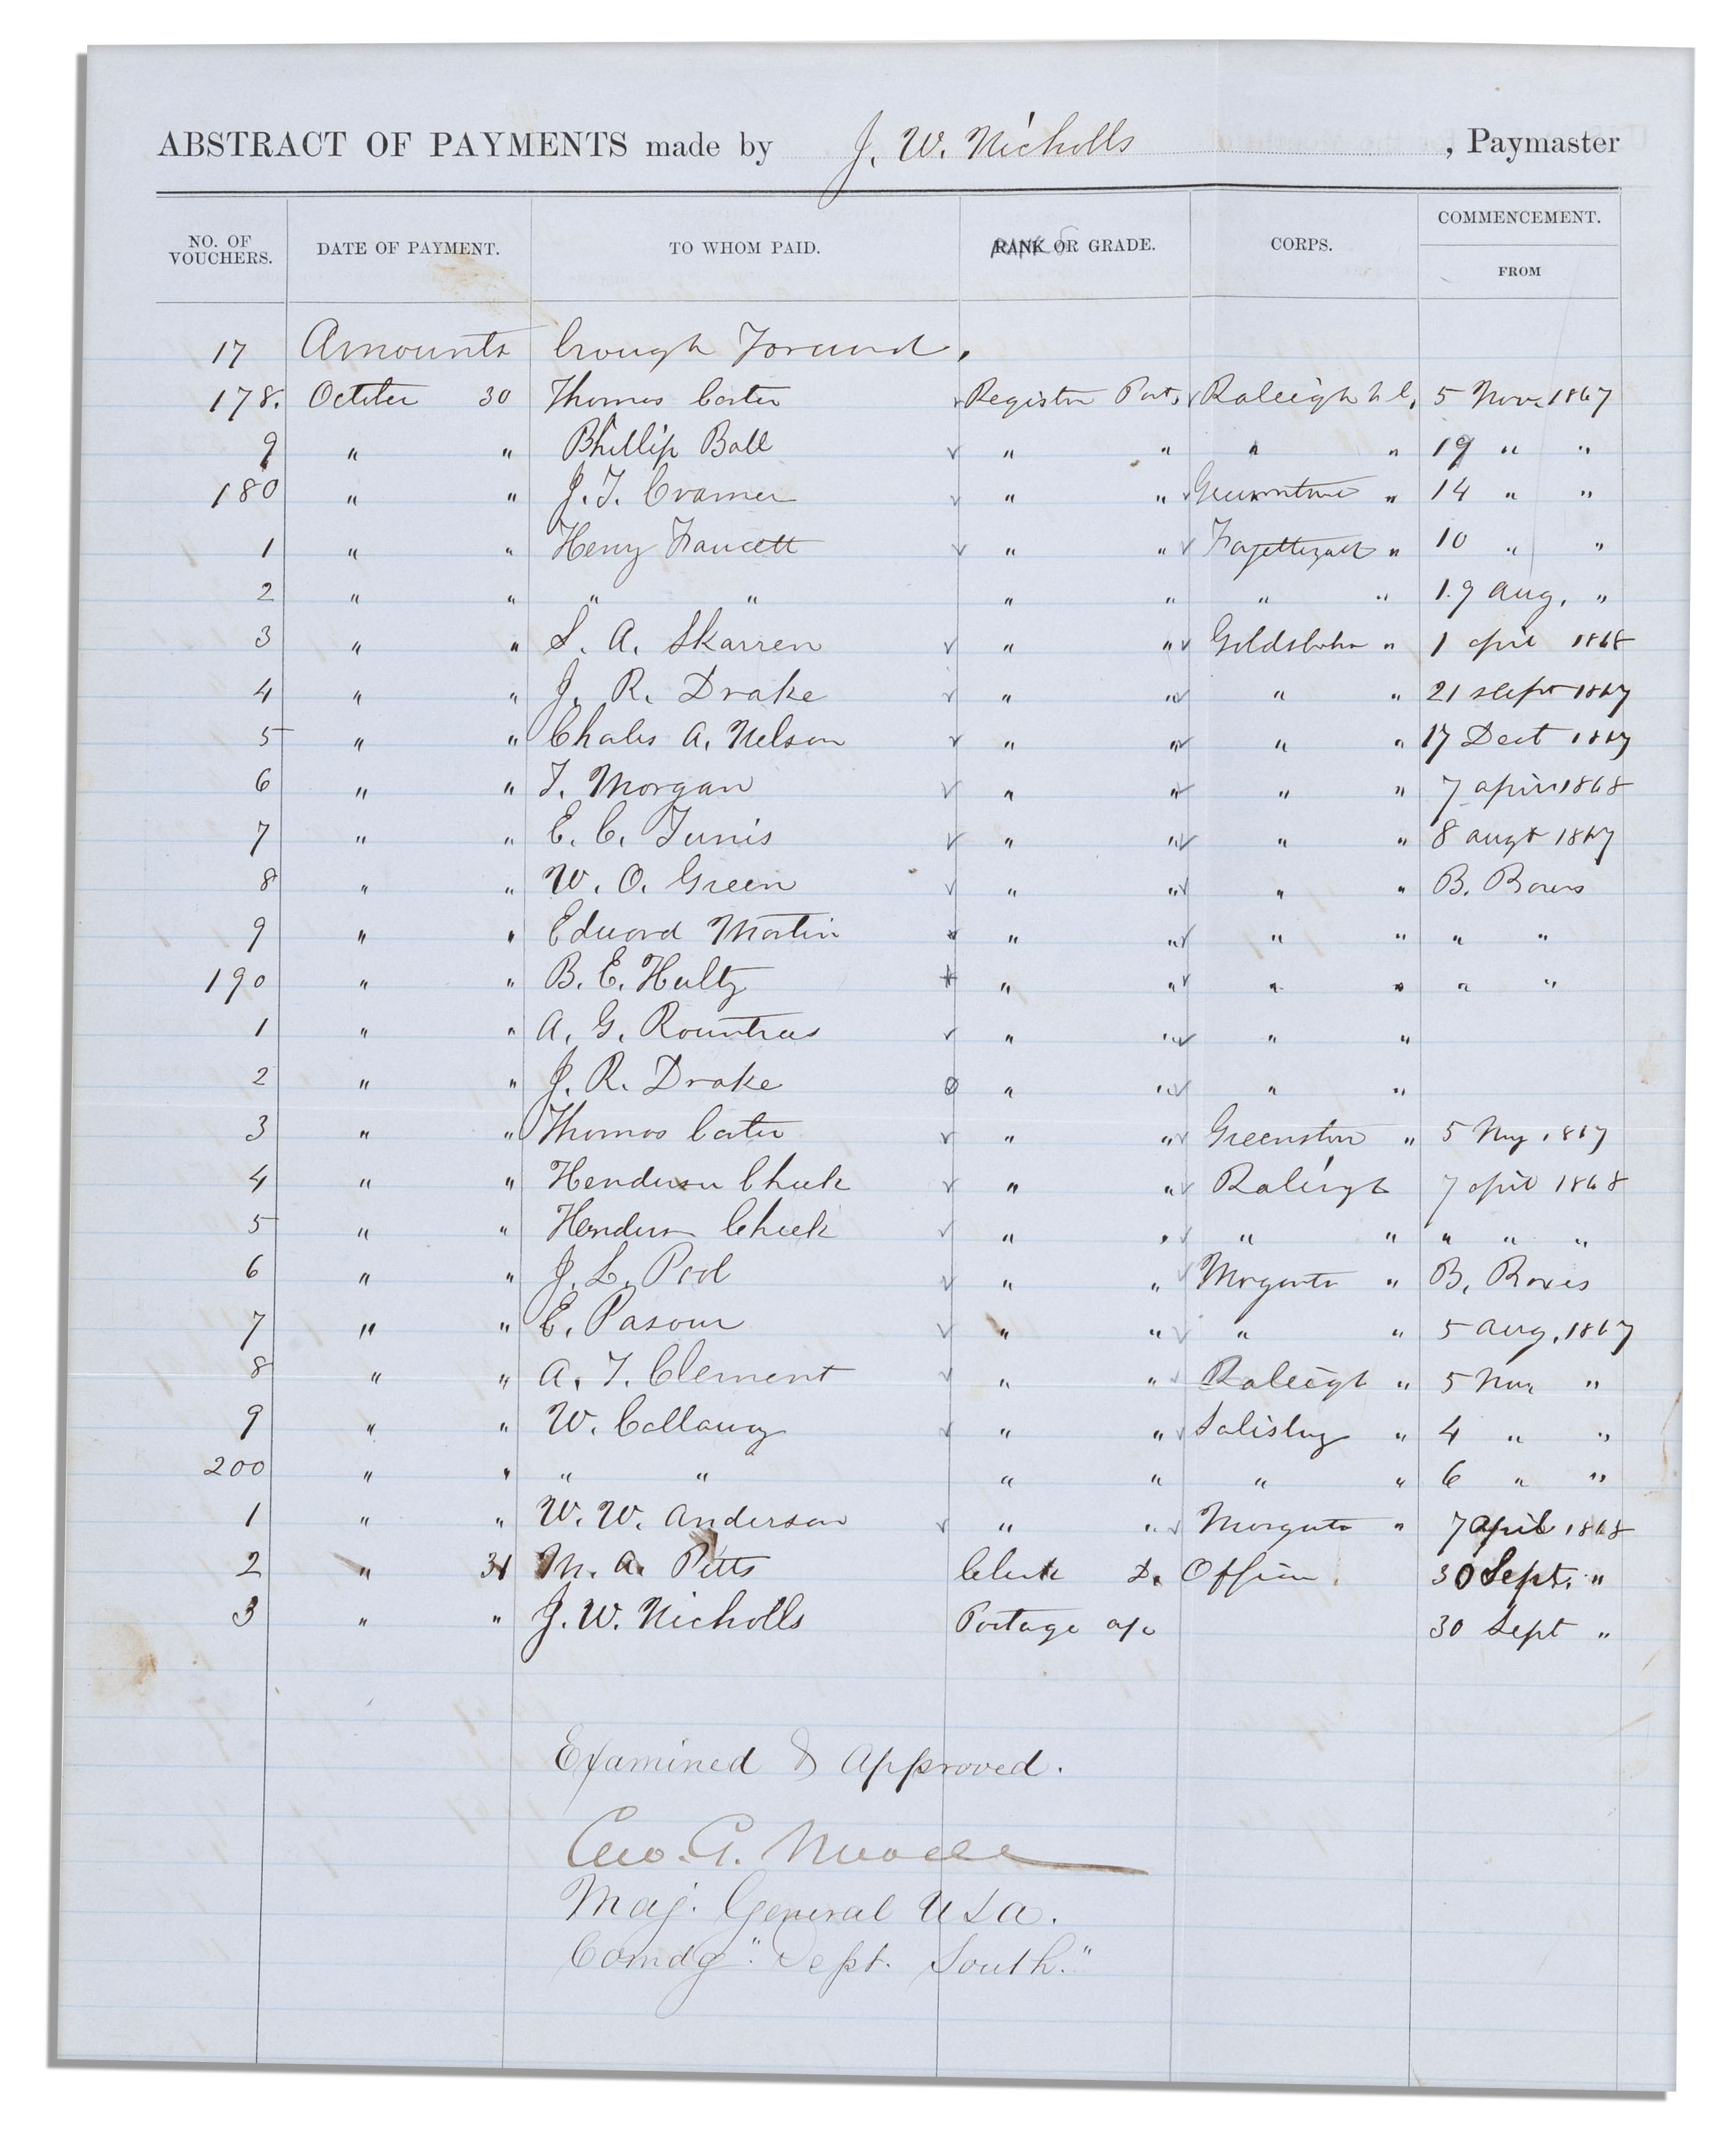 ABSTRACT OF PAYMENTS made by J. W. Nicholls , Paymaster
NO. OF VOUCHERS. DATE OF PAYMENT. TO WHOM PAID. RANK OR GRADE. CORPS. COMMENCEMENT. FROM
17 Amounts brough Forward.
178. October 30 Thomas Carter Register Post, Raleigh N C, 5 Nov. 1867
9 " " Phillip Ball " " " " 19 " "
180 " " J. T. Cramer " " " 14 " "
1 " " Henry Faucett " " " 10 " "
2 " " " " " " " " 19 Aug, "
3 " " S. A. Skarren " " Goldsboro " 1 April 1868
4 " " J. R. Drake " " " " 21 Sept 1867
5 " " Charles A. Nelson " " " " 17 1867
6 " " T. Morgan " " " " 7 April 1868
7 " " E. C. Tunis " " " " 8 Augt 1867
8 " " W. O. Green " " " " B.
9 " " Edward Martin " " " " " "
190 " " B. E. Hultz " " " " " "
1 " " A. G. Rountree " " " "
2 " " J. R. Drake " " " "
3 " " Thomas Carter " " " 5 1867
4 " " Henderson Cheek " " Raleigh 7 April 1868
5 " " Henderson Cheek " " " " " " "
6 " " J. L. Pool " " " B.
7 " " E. Pasour " " " " 5 Aug, 1867
8 " " A. T. Clement " " Raleigh " 5 Nov "
9 " " W. Callaway " " Salisbury " 4 " "
200 " " " " " " " " 6 " "
1 " " W. W. Anderson " " " 7 April 1868
2 " 31 M. A. Pitts Clerk D. Office 30 Sept. "
3 " " J. W. Nicholls Postage a/c 30 Sept "
Examined & Approved.
Geo. G. Meade
Maj. General USA.
Comdg "Dept. South."